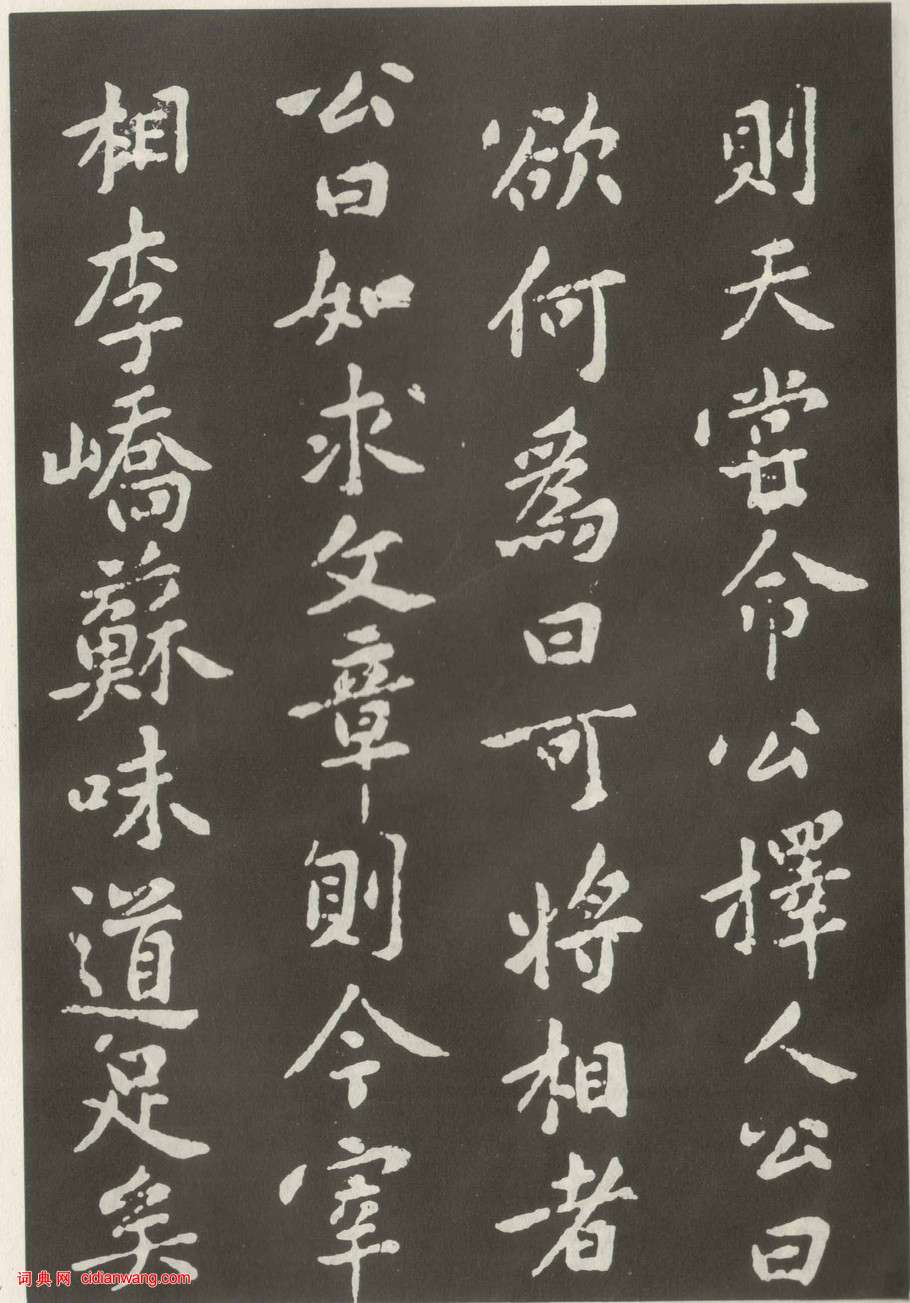 則天嘗命公擇人公曰
欲何為曰可將相者
公曰如求文章則今宰
相李嶠蘇味道足矣
词典网 cidianwang.com